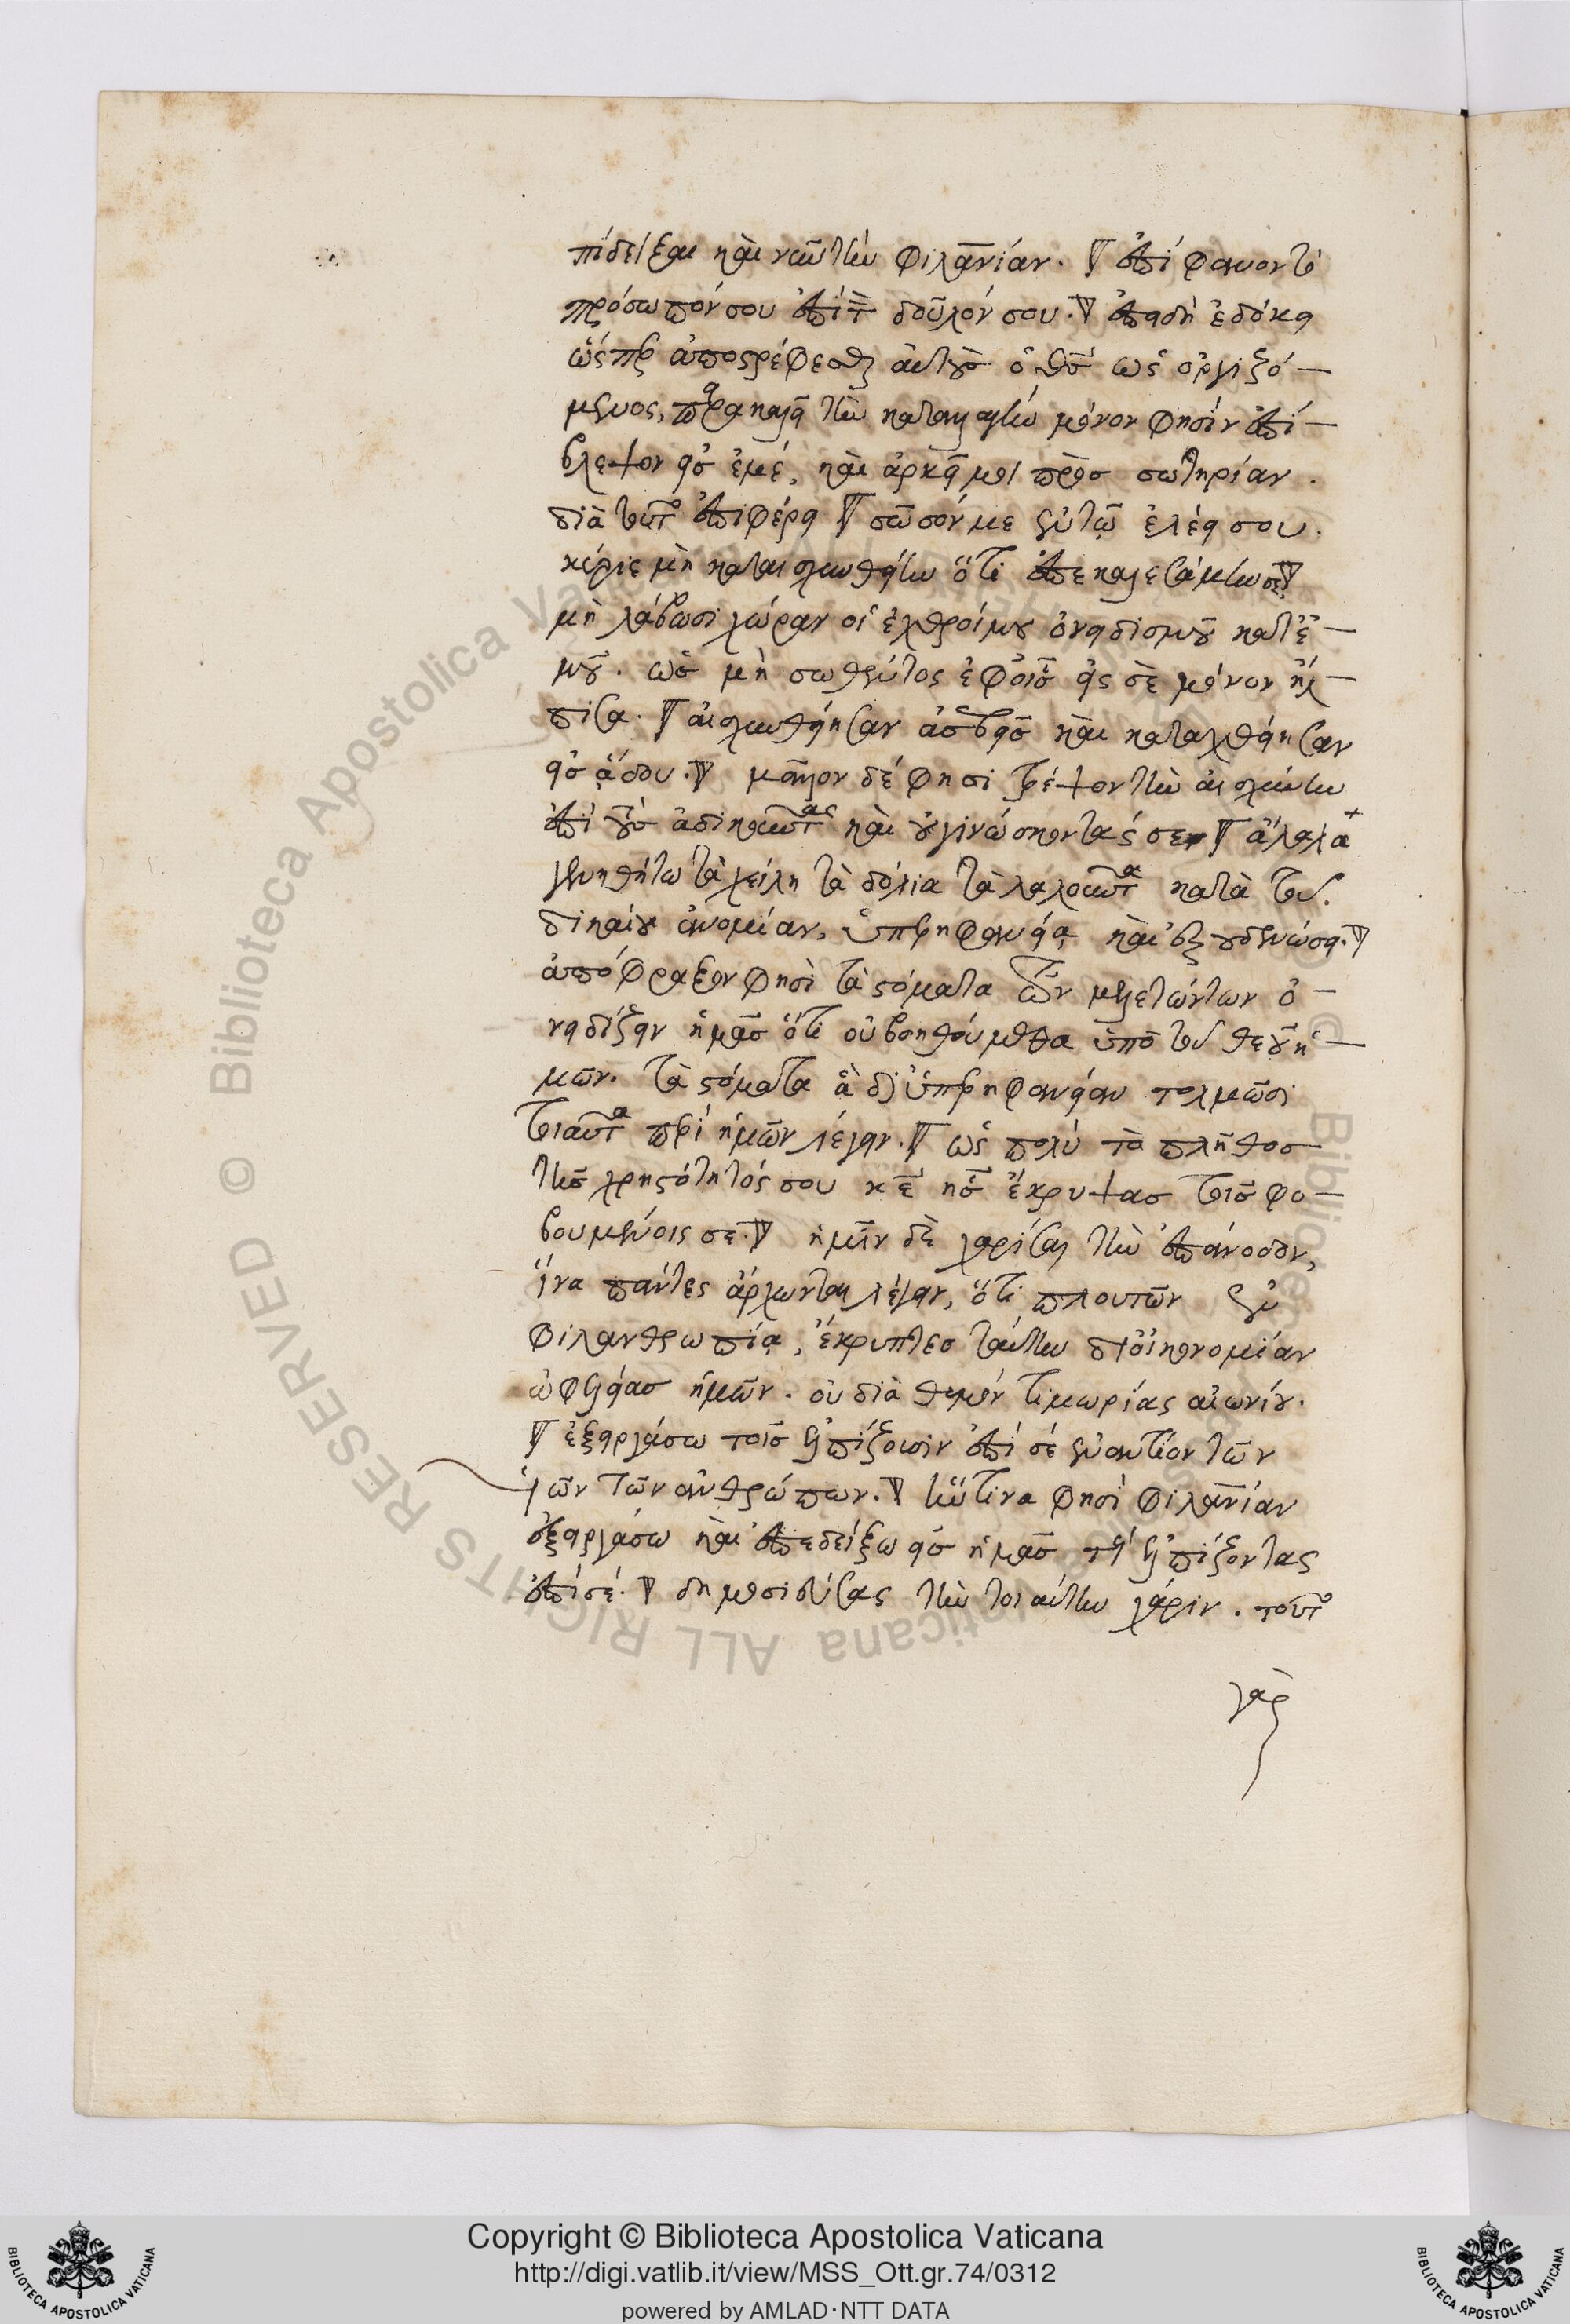 πίδειξαι καὶ νῦν τὴν φιλανίαν. ἐπίφανον τὸ
πρόσωπόν σου ἐπὶ τὸν δοῦλόν σου. ἐπειδὴ ἐδόκει
ὥσπερ ἀποστρέφεσθαι αὐτοὺς ὁ θς ὡς ὀργιζό-
μενος, παρακαλεῖ τὴν καταλλαγὴν μόνον φησὶν ἐπί-
βλεψον εἰς ἐμέ, καὶ ἀρκεῖ μοι πρὸς σωτηρίαν.
διὰ τοῦτο ἐπιφέρει σῶσόν με ἐν τῷ ἐλέει σου.
κύριε μὴ καταισχυνθείην ὅτι ἐπεκαλεσάμην σε
μὴ λάβωσι χώραν οἱ ἐχθροί μου ὀνειδισμοῦ κατ' ἐ-
μοῦ. ὡς μὴ σωθέντος ἐφ' οἷς εἰς σὲ μόνον ἤλ-
πισα. αἰσχυνθείησαν ἀσεβεῖς καὶ καταχθείησαν
εἰς ᾅδου. μᾶλλον δέ φησι τρέψον τὴν αἰσχύνην
ἐπὶ τοὺς ἀδικοῦντας καὶ οὐ γινώσκοντάς σε ἄλαλα
γενηθήτω τὰ χείλη τὰ δόλια τὰ λαλοῦντα κατὰ τοῦ
δικαίου ἀνομίαν, ὑπερηφανείᾳ καὶ ἐξουδενώσει.
ἀπόφραξον φησὶ τὰ στόματα τῶν μελετώντων ὀ-
νειδίζειν ἡμᾶς ὅτι οὐ βοηθούμεθα ὑπὸ τοῦ θεοῦ ἡ-
μῶν. τὰ στόματα ἃ δι' ὑπερηφανείαν τολμῶσι
τοιαῦτα περὶ ἡμῶν λέγειν. ὡς πολὺ τὸ πλῆθος
τῆς χρηστότητός σου κε ἧς ἔκρυψας τοῖς φο-
βουμένοις σε. ἡμῖν δὲ χαρίσαι τὴν ἐπάνοδον,
ἵνα πάντες ἄρχωνται λέγειν, ὅτι πλουτῶν ἐν
φιλανθρωπίᾳ, ἔκρυπτες ταύτην δι' οἰκονομίαν
ὠφελείας ἡμῶν. οὐ διὰ θυμὸν τιμωρίας αἰωνίου.
ἐξειργάσω τοῖς ἐλπίζουσιν ἐπὶ σὲ ἐναντίον τῶν
υἱῶν τῶν ἀνθρώπων. ἥντινα φησὶ φιλανίαν
ἐξειργάσω καὶ ἐπεδείξω εἰς ἡμᾶς τοὺς ἐλπίζοντας
ἐπὶ σέ. δημοσιεύσας τὴν τοιαύτην χάριν. τοῦτο
γὰρ
Copyright © Biblioteca Apostolica Vaticana
http://digi.vatlib.it/view/MSS_Ott.gr.74/0312
powered by AMLAD·NTT DATA